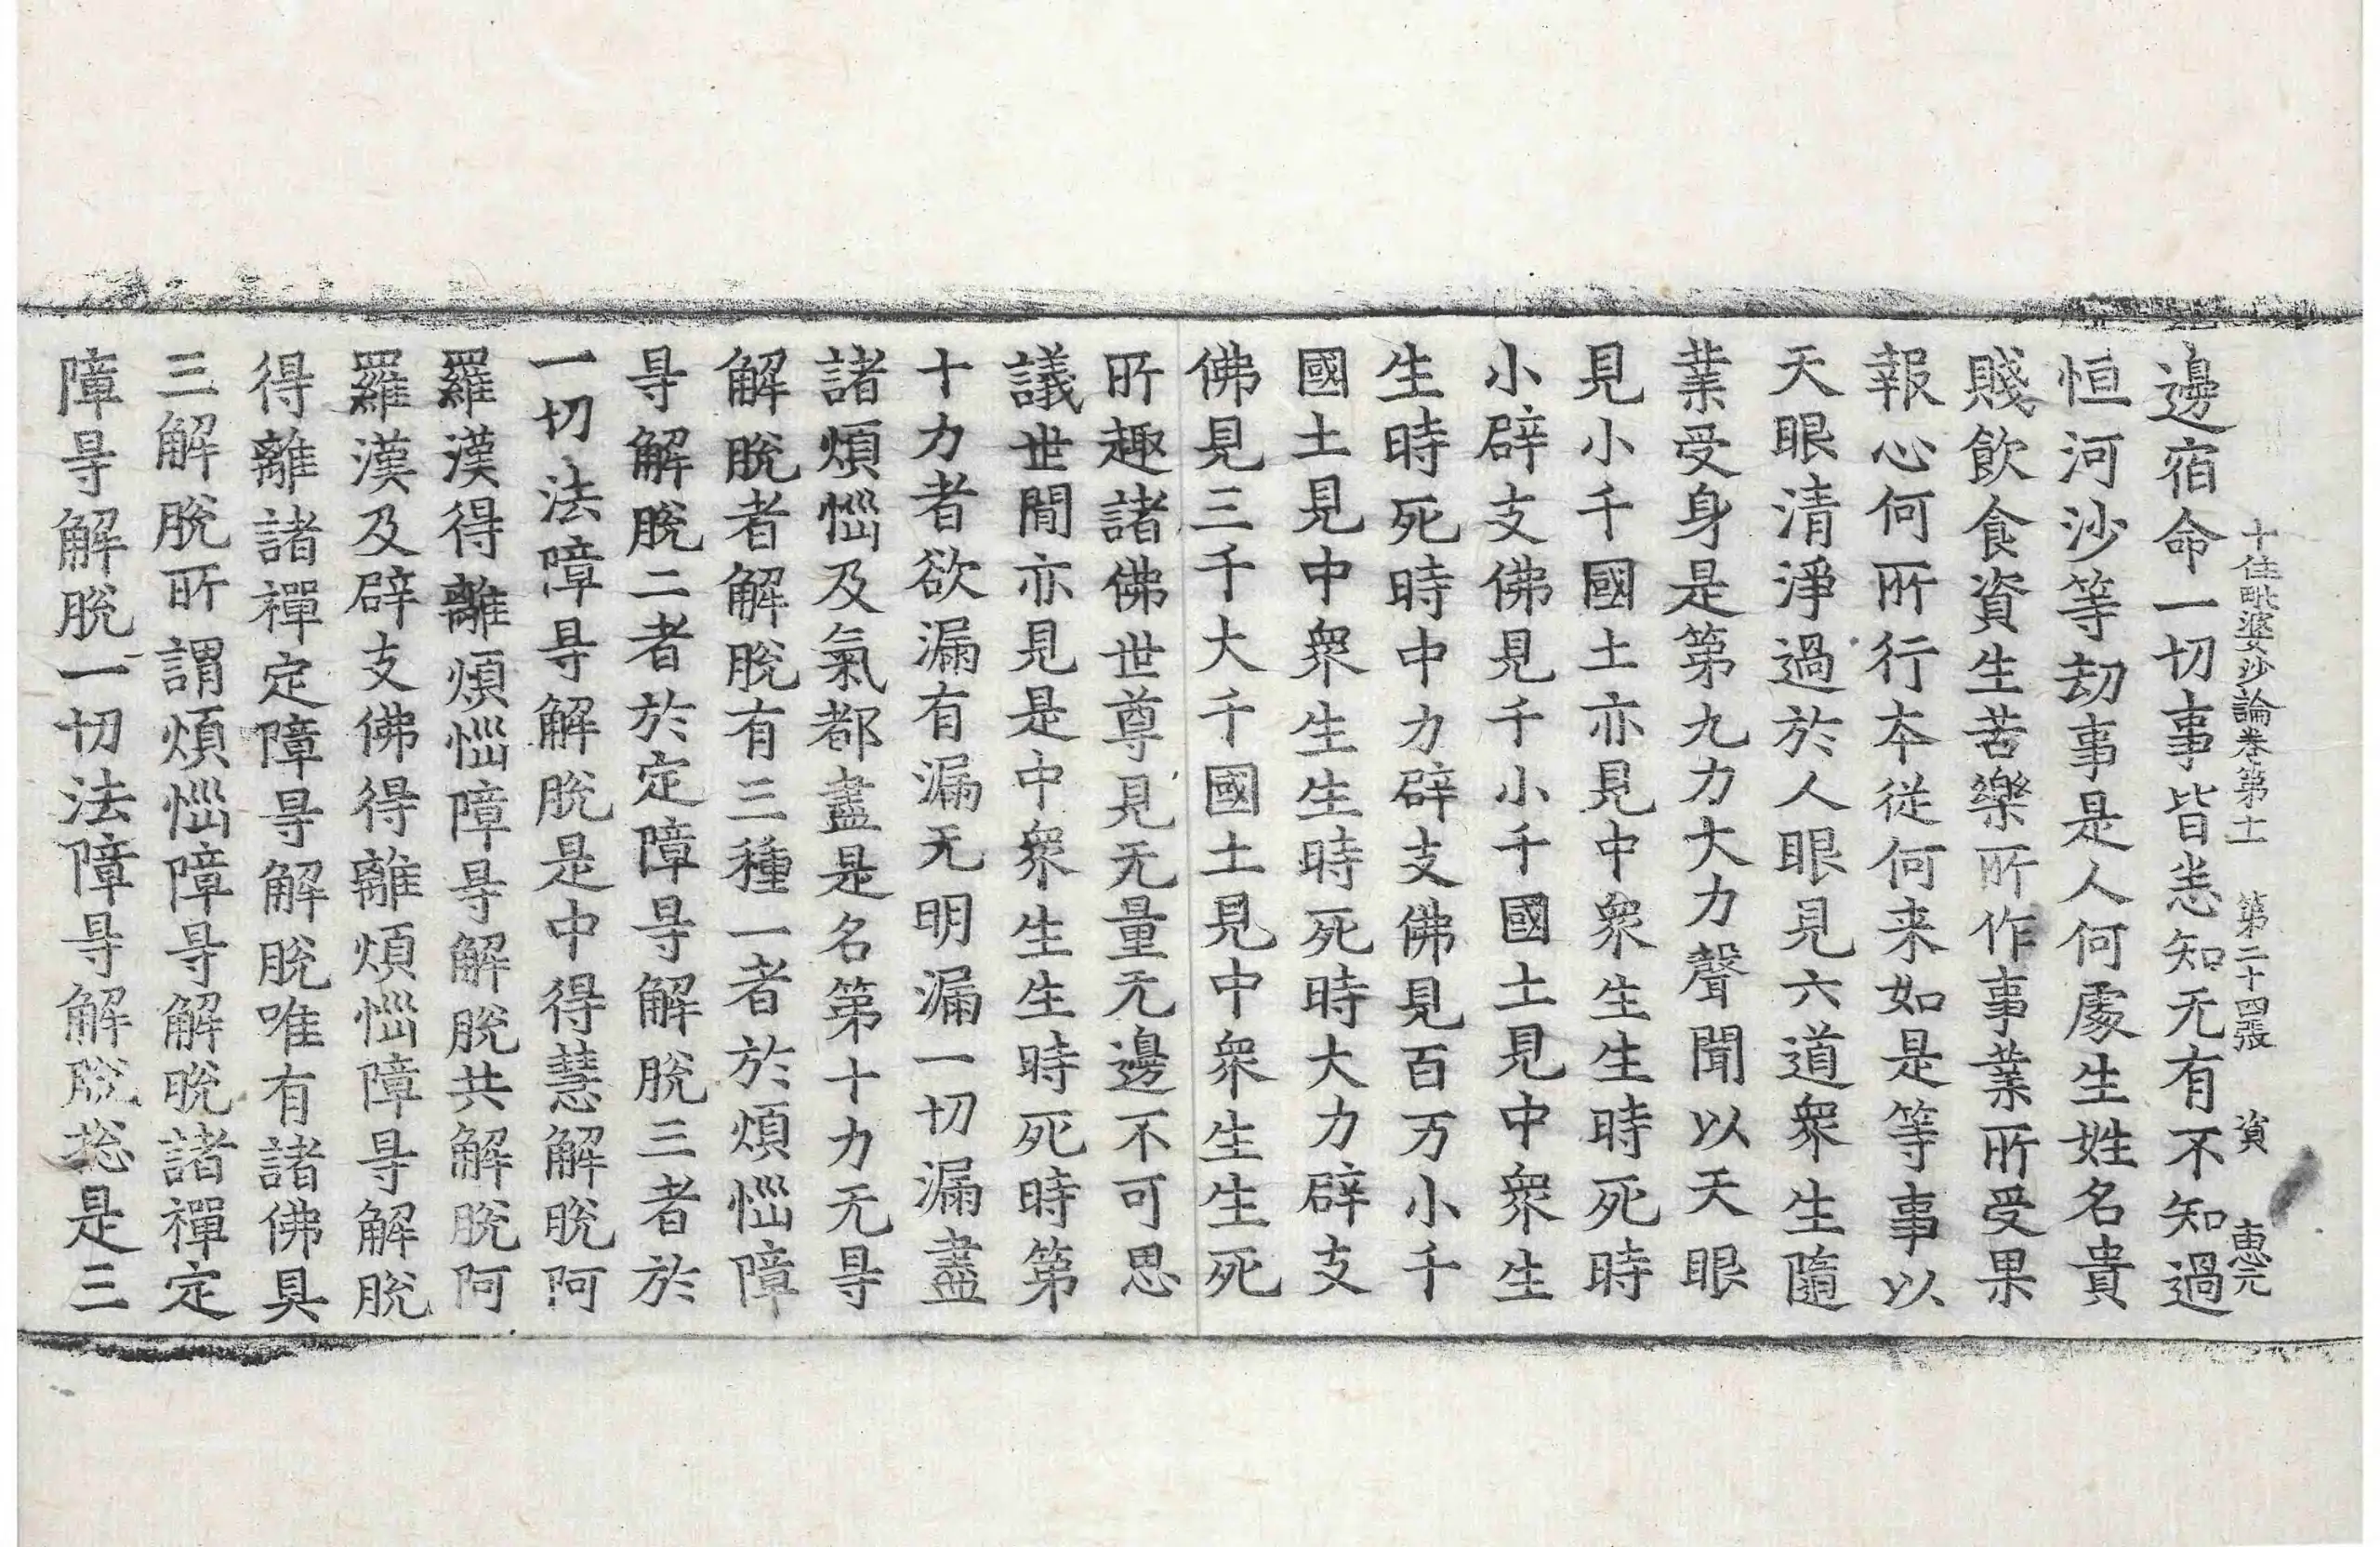 十住毗婆沙論卷第十一 第二十四張 資 惠元
邊宿命一切事皆恙知无有不知過
恒河沙等劫事是人何處生姓名貴
賤飲食資生苦樂所作事業所受果
報心何所行本從何来如是等事以
天眼清淨過於人眼見六道衆生隨
業受身是第九力大力聲聞以天眼
見小千國土亦見中衆生生時死時
小辟支佛見千小千國土見中衆生
生時死時中力辟支佛見百万小千
國土見中衆生生時死時大力辟支
佛見三千大千國土見中衆生生死
所趣諸佛世尊見无量无邊不可思
議世間亦見是中衆生生時死時第
十力者欲漏有漏无明漏一切漏盡
諸煩惱及氣都盡是名第十力无㝵
解脫者解脫有三種一者於煩惱障
㝵解脫二者於定障㝵解脫三者於
一切法障㝵解脫是中得慧解脫阿
羅漢得離煩惱障㝵解脫共解脫阿
羅漢及辟支佛得離煩惱障㝵解脫
得離諸禪定障㝵解脫唯有諸佛具
三解脫所謂煩惱障㝵解脫諸禪定
障㝵解脫一切法障㝵解脫捴是三